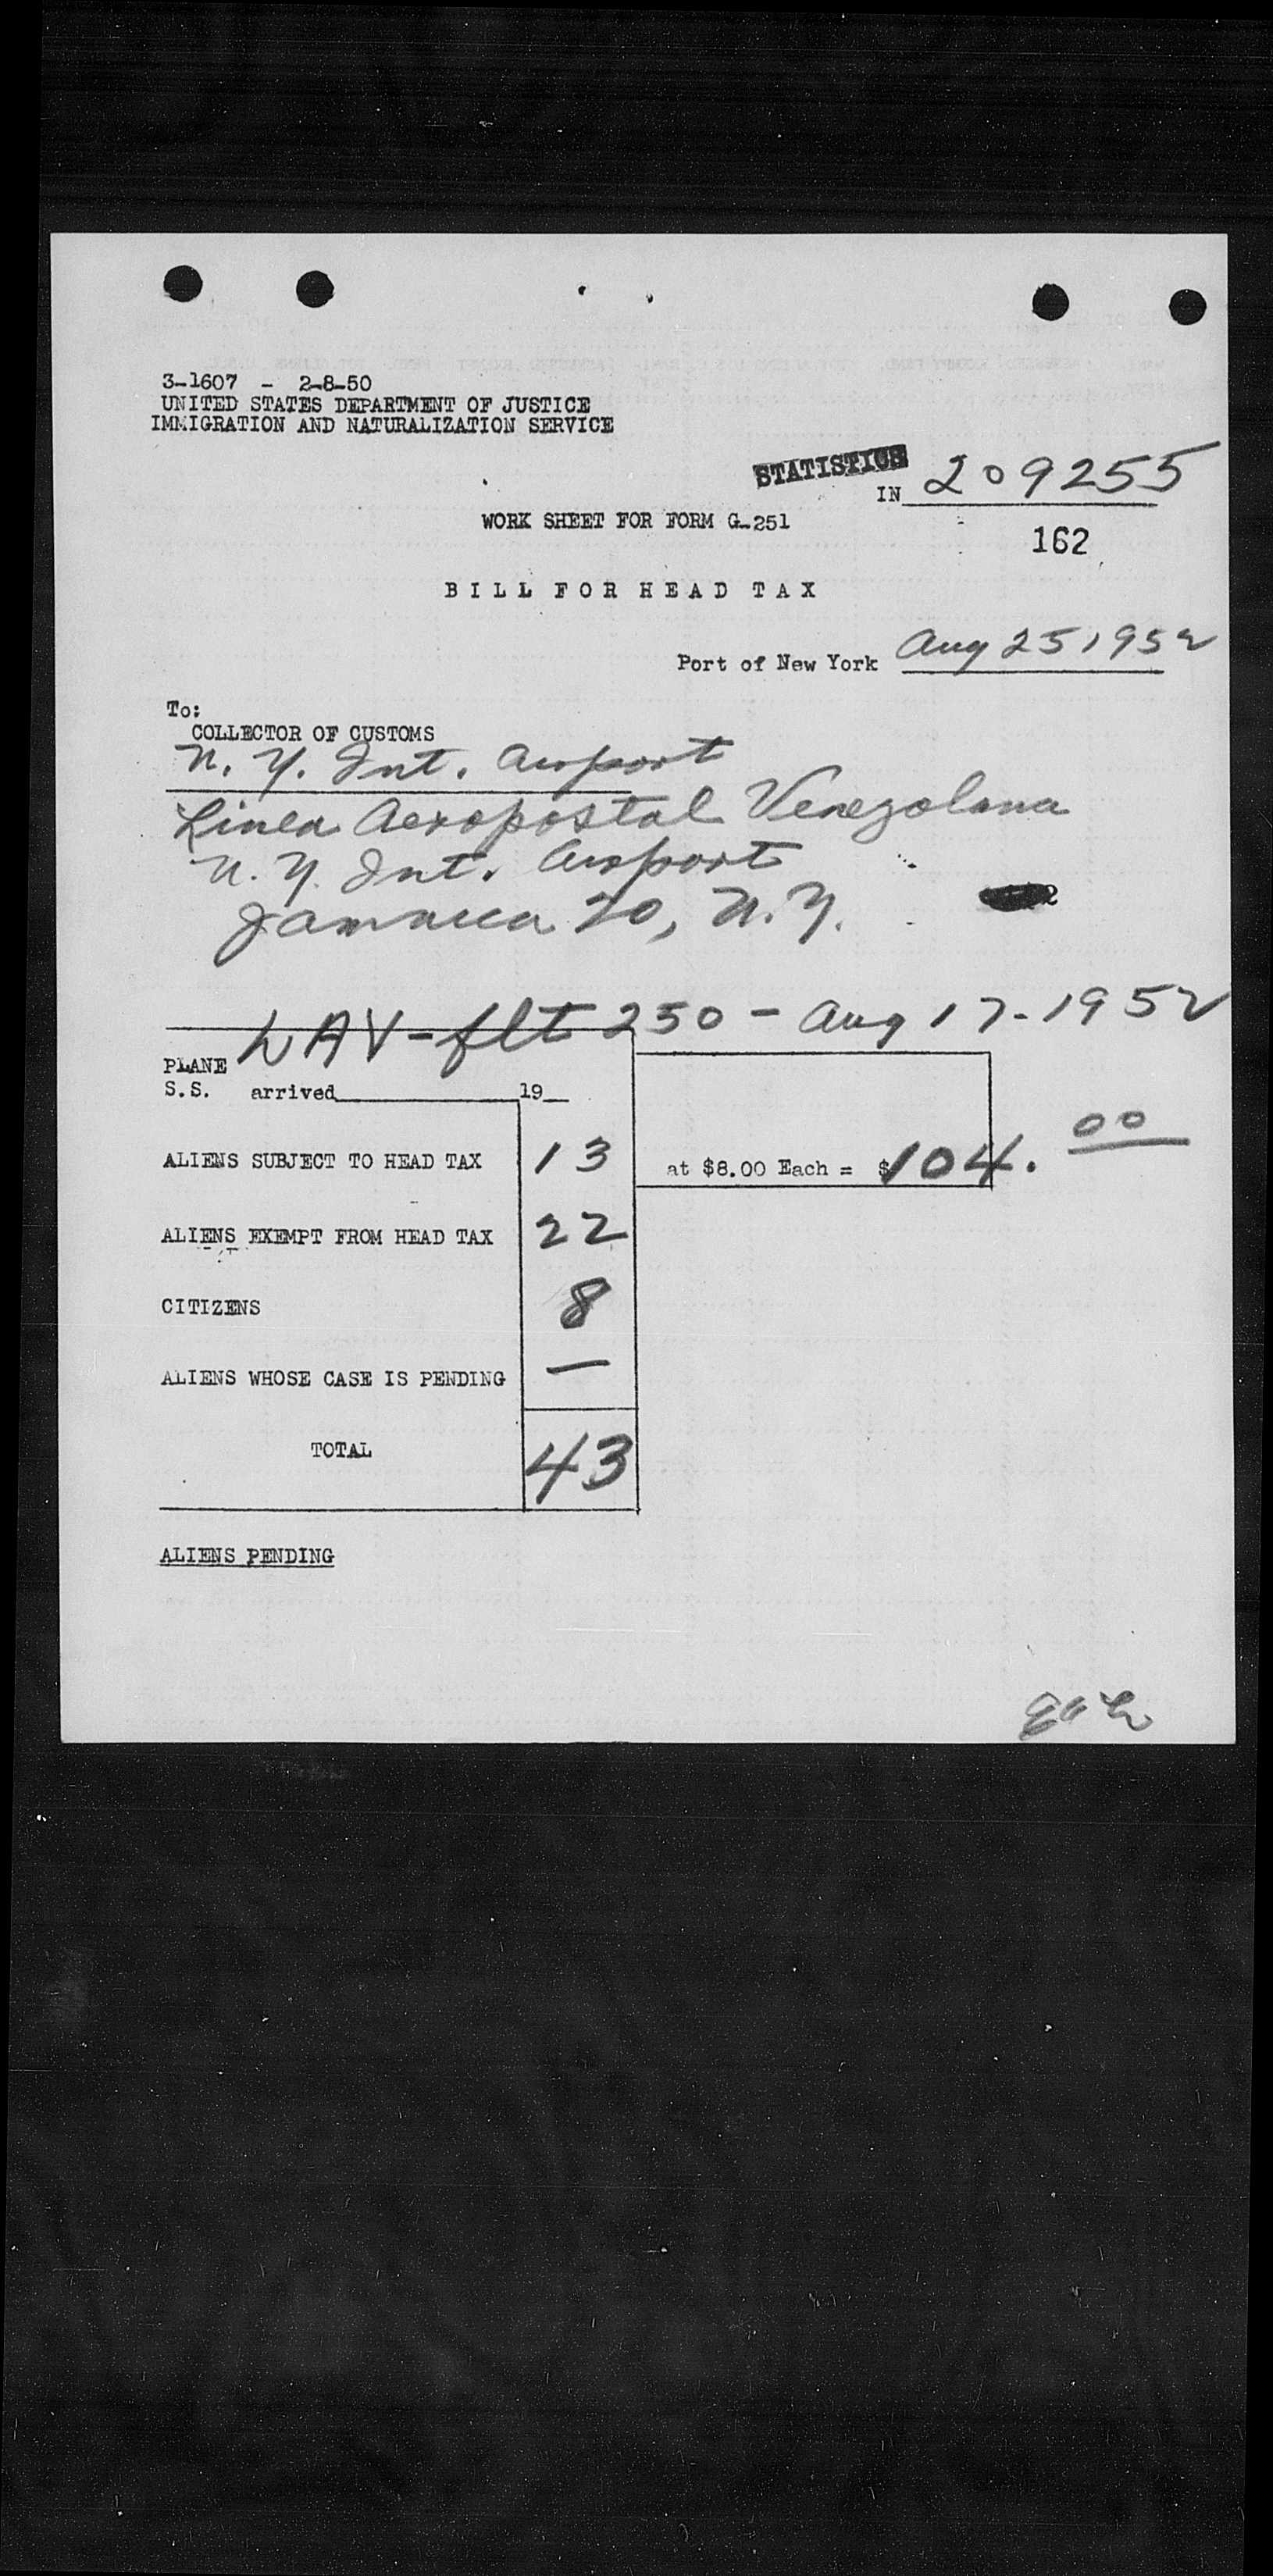 3-1607 - 2-8-50
UNITED STATES DEPARTMENT OF JUSTICE
IMMIGRATION AND NATURALIZATION SERVICE
STATISTICS
IN 209255
WORK SHEET FOR FORM G-251
162
BILL FOR HEAD TAX
Port of New York Aug 25, 1952
To:
COLLECTOR OF CUSTOMS
N. Y. Int. Airport
Linea Aeropostal Venezolana
N. Y. Int. Airport
2
Jamaica 20, N.Y.
LAV - flt 250 - Aug 17-1952
PLANE
S.S. arrived 19
ALIENS SUBJECT TO HEAD TAX 13 at $8.00 Each = $104.00
ALIENS EXEMPT FROM HEAD TAX 22
CITIZENS 8
ALIENS WHOSE CASE IS PENDING —
TOTAL 43
ALIENS PENDING